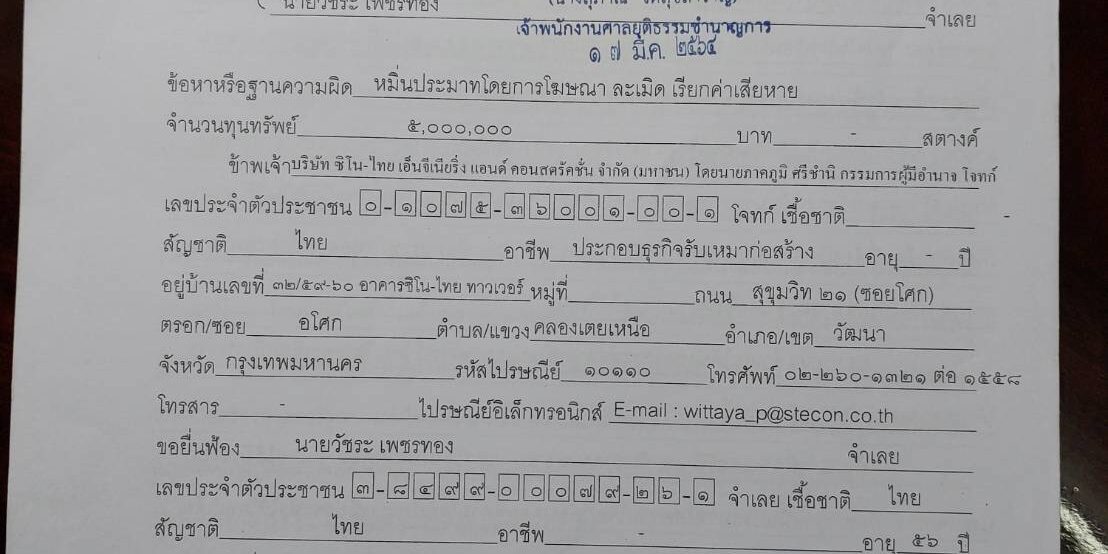 นายวัชระ เพชรทอง
จำเลย
เจ้าพนักงานศาลยุติธรรมชำนาญการ
๑๗ มี.ค. ๒๕๖๔
ข้อหาหรือฐานความผิด หมิ่นประมาทโดยการโฆษณา ละเมิด เรียกค่าเสียหาย
จำนวนทุนทรัพย์ ๕,๐๐๐,๐๐๐ บาท - สตางค์
ข้าพเจ้าบริษัท ซิโน-ไทย เอ็นจีเนียริ่ง แอนด์ คอนสตรัคชั่น จำกัด (มหาชน) โดยนายภาคภูมิ ศรีชำนิ กรรมการผู้มีอำนาจ โจทก์
เลขประจำตัวประชาชน ๐-๑๐๗๕-๓๖๐๐๑-๐๐-๑ โจทก์ เชื้อชาติ -
สัญชาติ ไทย อาชีพ ประกอบธุรกิจรับเหมาก่อสร้าง อายุ - ปี
อยู่บ้านเลขที่ ๓๒/๕๙-๖๐ อาคารซิโน-ไทย ทาวเวอร์ หมู่ที่ ถนน สุขุมวิท ๒๑ (ซอยโศก)
ตรอก/ซอย อโศก ตำบล/แขวง คลองเตยเหนือ อำเภอ/เขต วัฒนา
จังหวัด กรุงเทพมหานคร รหัสไปรษณีย์ ๑๐๑๑๐ โทรศัพท์ ๐๒-๒๖๐-๑๓๒๑ ต่อ ๑๕๕๘
โทรสาร - ไปรษณีย์อิเล็กทรอนิกส์ E-mail : wittaya_p@stecon.co.th
ขอยื่นฟ้อง นายวัชระ เพชรทอง จำเลย
เลขประจำตัวประชาชน ๓-๘๔๙๙-๐๐๐๗๙-๒๖-๑ จำเลย เชื้อชาติ ไทย
สัญชาติ ไทย อาชีพ - อายุ ๕๖ ปี